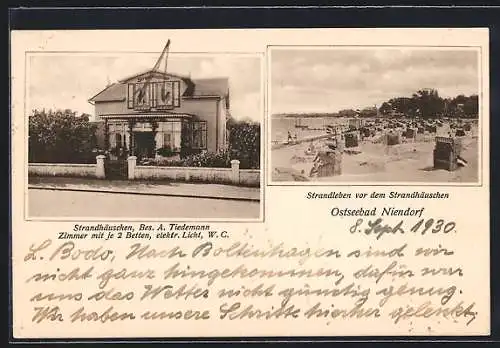 Strandhäuschen, Bes. A. Tiedemann
Zimmer mit je 2 Betten, elektr. Licht, W. C.
Strandleben vor dem Strandhäuschen
Ostseebad Niendorf
8. Sept. 1930.
L. Bodo, Nach Boltenhagen sind wir
nicht ganz hingekommen, dafür war
uns das Wetter nicht günstig genug.
Wir haben unsere Schritte hierher gelenkt,